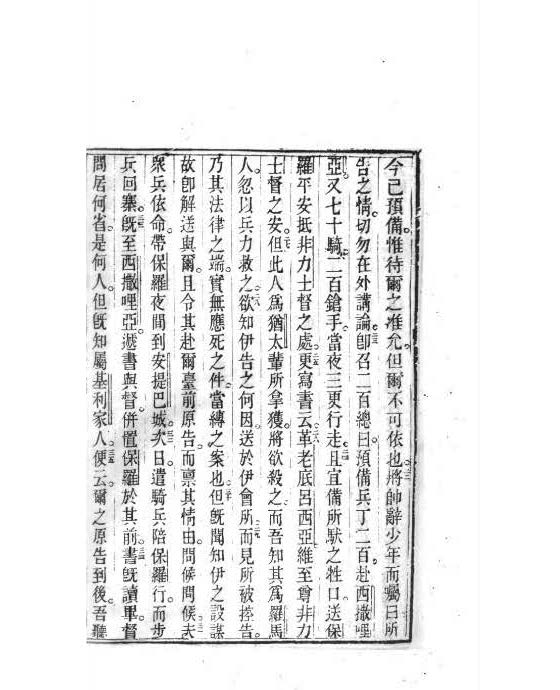 今已預備惟待爾之准允但爾不可依也將帥辭少年而囑曰所
告之情切勿在外講論卽召二百總曰預備兵丁二百赴西撒哩
亞又七十騎二百鎗手當夜三更行走且宜備所馱之牲口送保
羅平安抵非力士督之處更寫書云革老底呂西亞維至尊非力
士督之安但此人爲猶太輩所拿獲將欲殺之而吾知其爲羅馬
人忽以兵力救之欲知伊告之何因送於伊會所而見所被控告
乃其法律之端實無應死之件當縛之案也但旣聞知伊之設謀
故卽解送與爾且令其赴爾臺前原告而禀其情由問候問候夫
衆兵依命帶保羅夜間到安提巴城次日遣騎兵陪保羅行而步
兵回寨旣至西撒哩亞遞書與督併置保羅於其前書旣讀畢督
問居何省是何人但旣知屬基利家人便云爾之原告到後吾聽